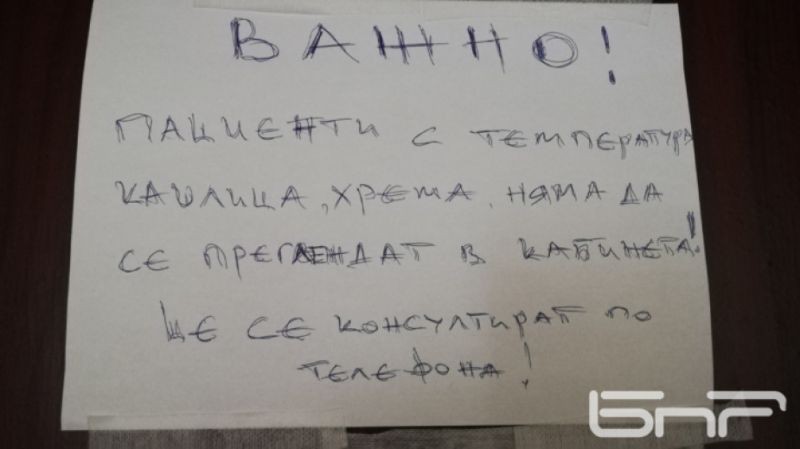 ВАЖНО!
ПАЦИЕНТИ С ТЕМПЕРАТУРА
КАШЛИЦА, ХРЕМА, НЯМА ДА
СЕ ПРЕГЛЕНДАТ В КАБИНЕТА!
ЩЕ СЕ КОНСУЛТИРАТ ПО
ТЕЛЕФОНА!
БНР